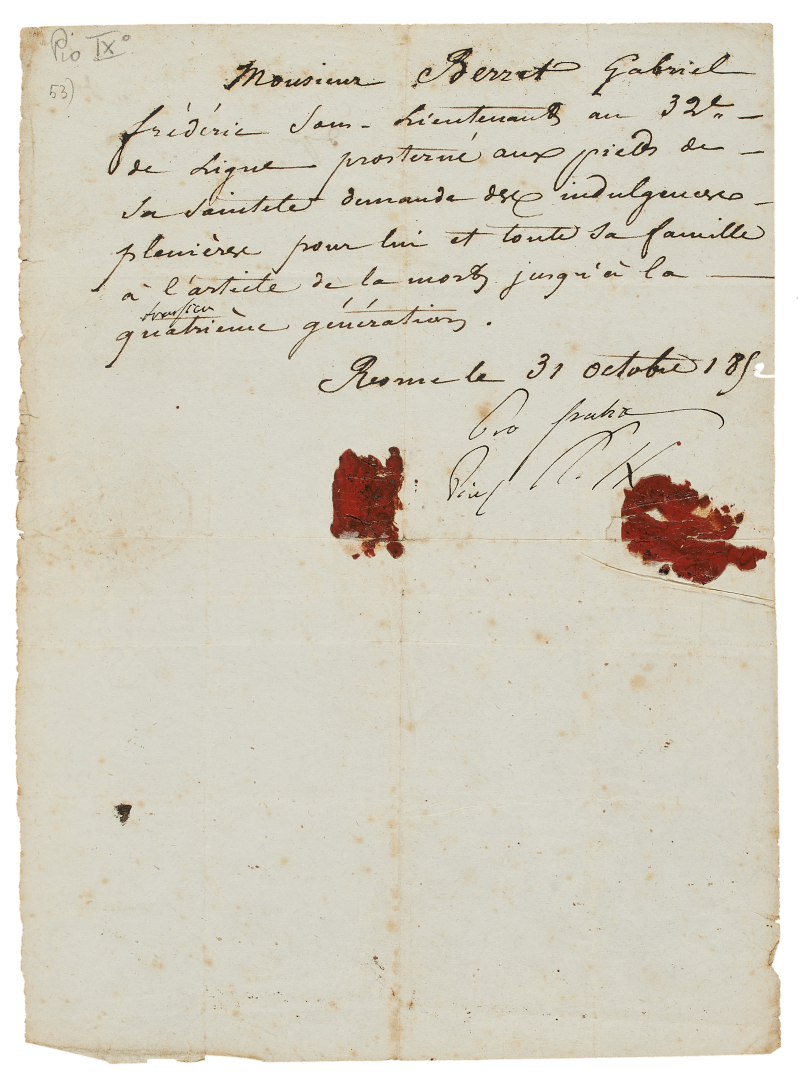 Pio IX°
53)
Monsieur Berret Gabriel
frédéric Sous-Lieutenant au 32e
de Ligne prosterné aux pieds de
Sa Sainteté demande des indulgences
plenières pour lui et toute sa famille
à l'article de la mort jusqu'à la
quatrième génération.
Rome le 31 octobre 185
Pro gratia
Pius P. IX